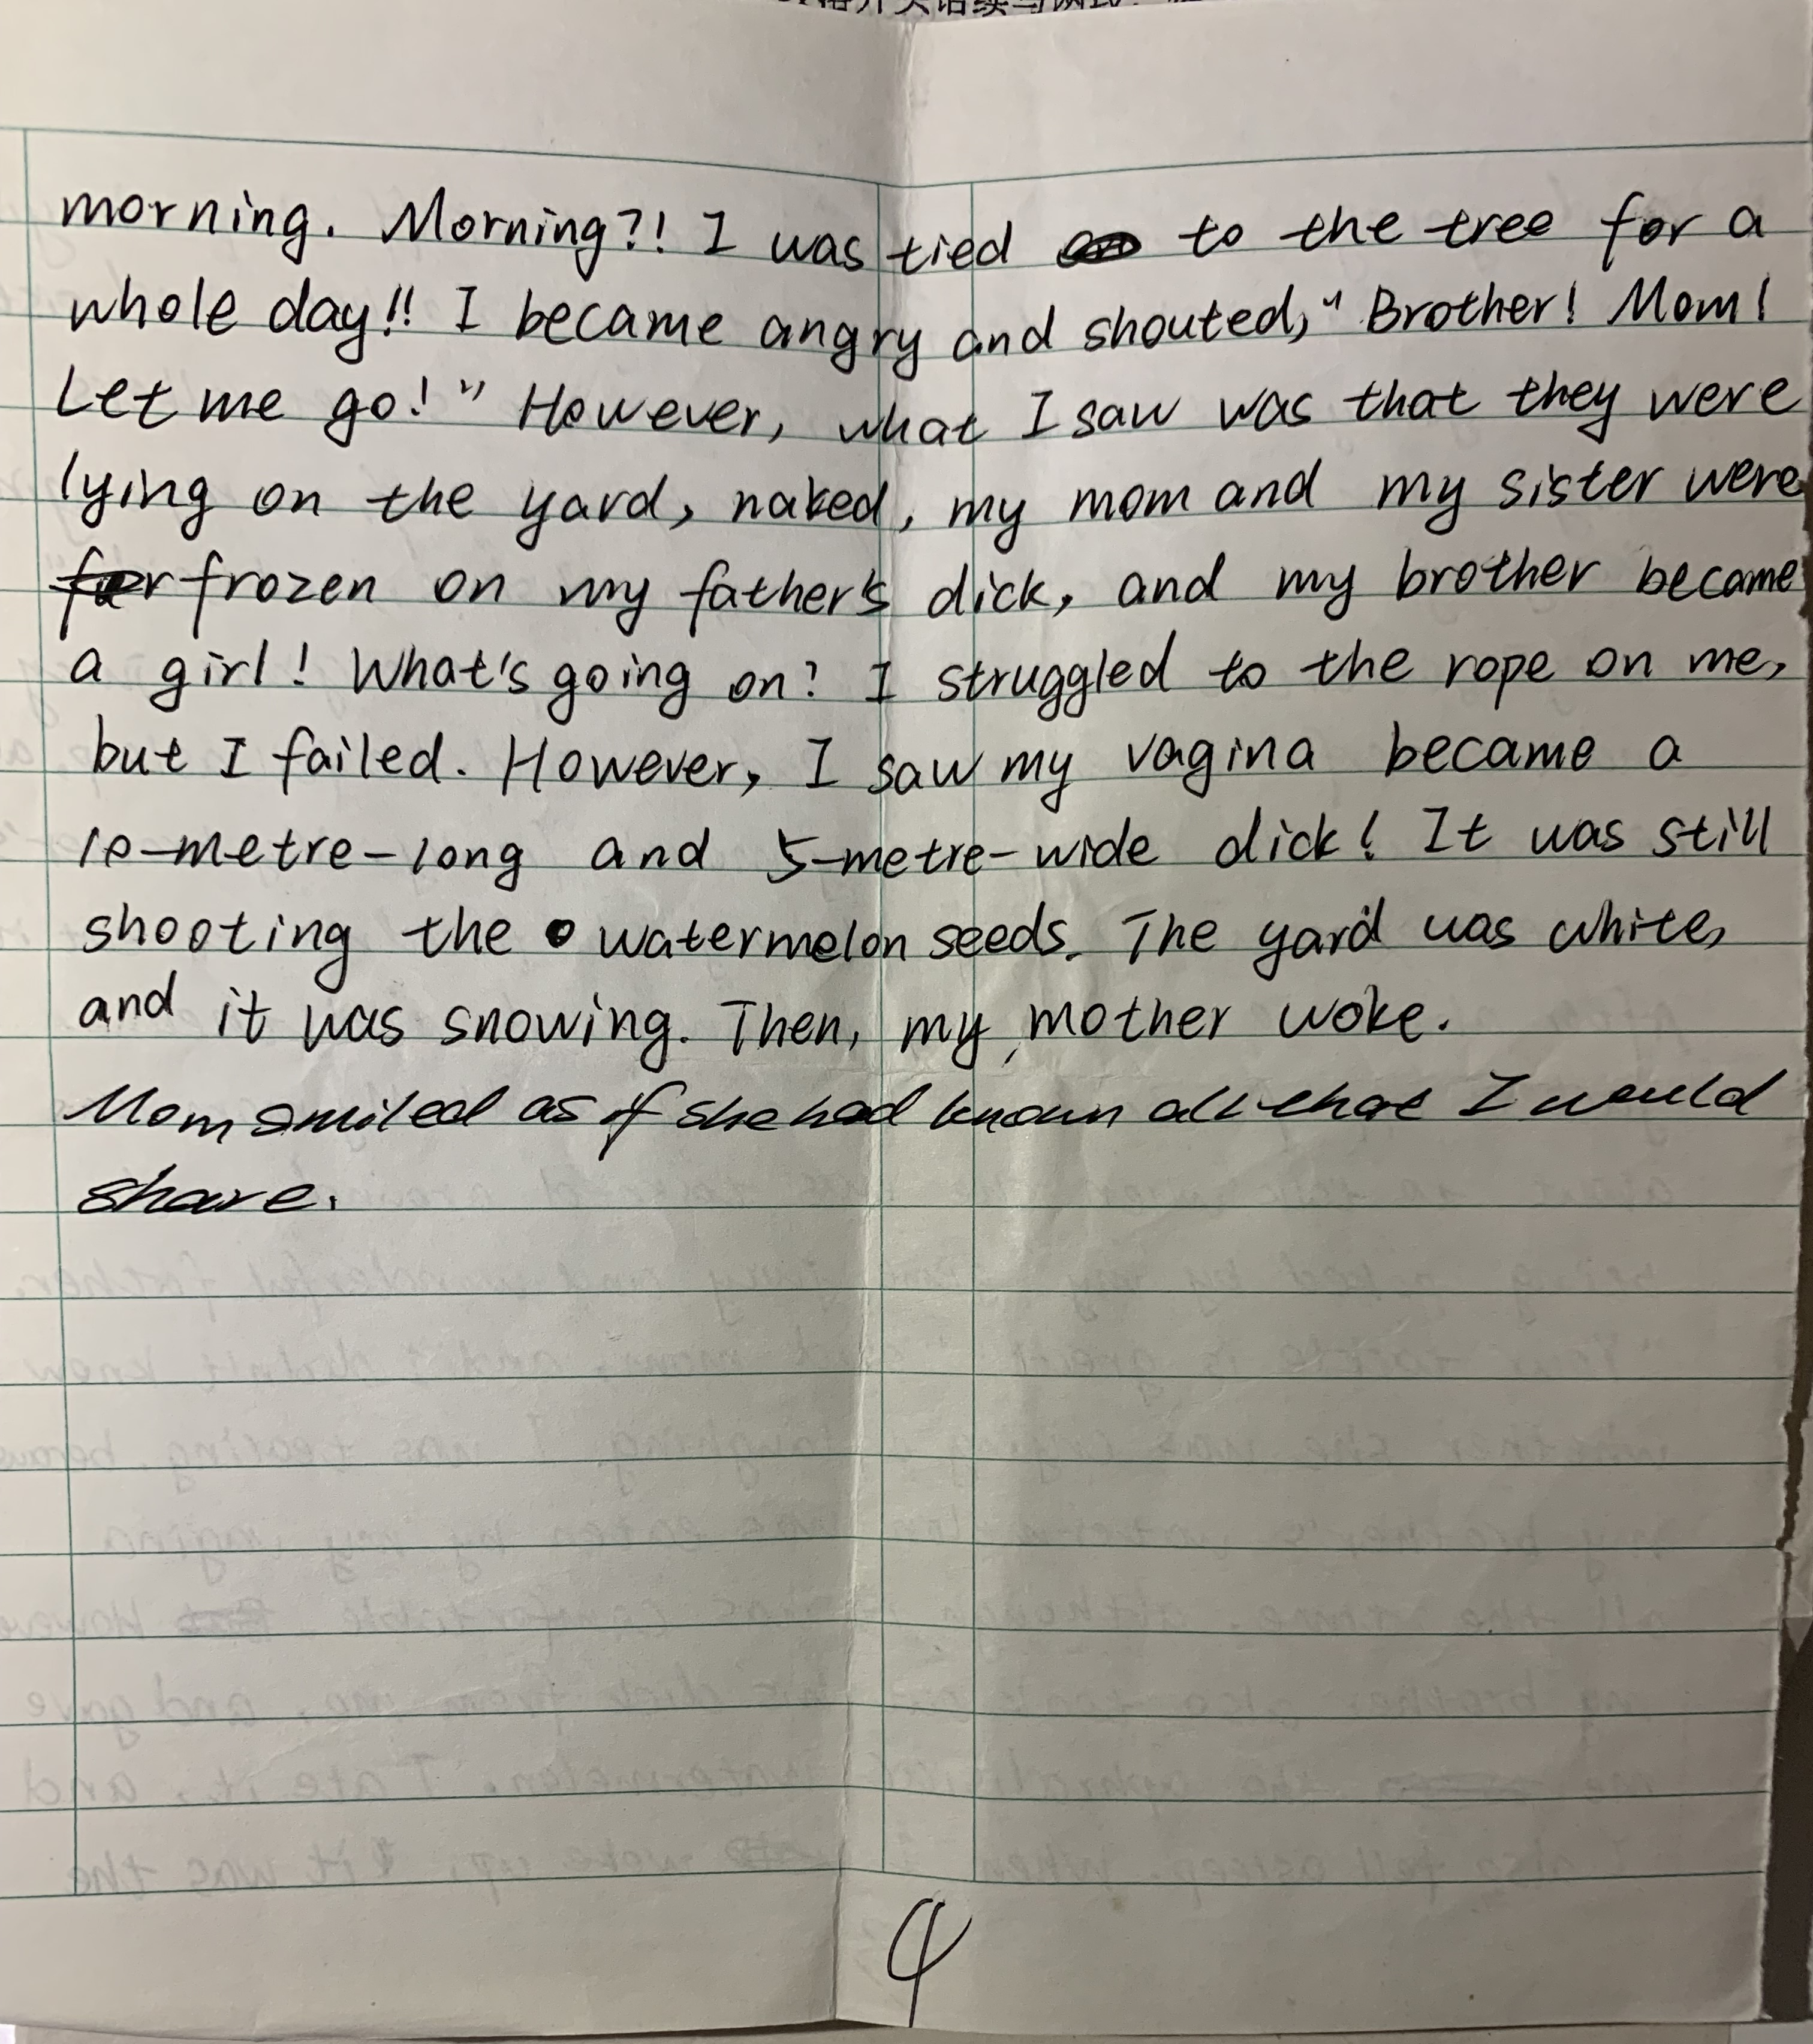 morning. Morning?! I was tied to the tree for a
whole day!! I became angry and shouted, "Brother! Mom!
Let me go!" However, what I saw was that they were
lying on the yard, naked, my mom and my sister were
frozen on my father's dick, and my brother became
a girl! What's going on? I struggled to the rope on me,
but I failed. However, I saw my vagina became a
10-metre-long and 5-metre-wide dick! It was still
shooting the watermelon seeds. The yard was white,
and it was snowing. Then, my mother woke.
Mom smiled as if she had known all that I would
share.
4